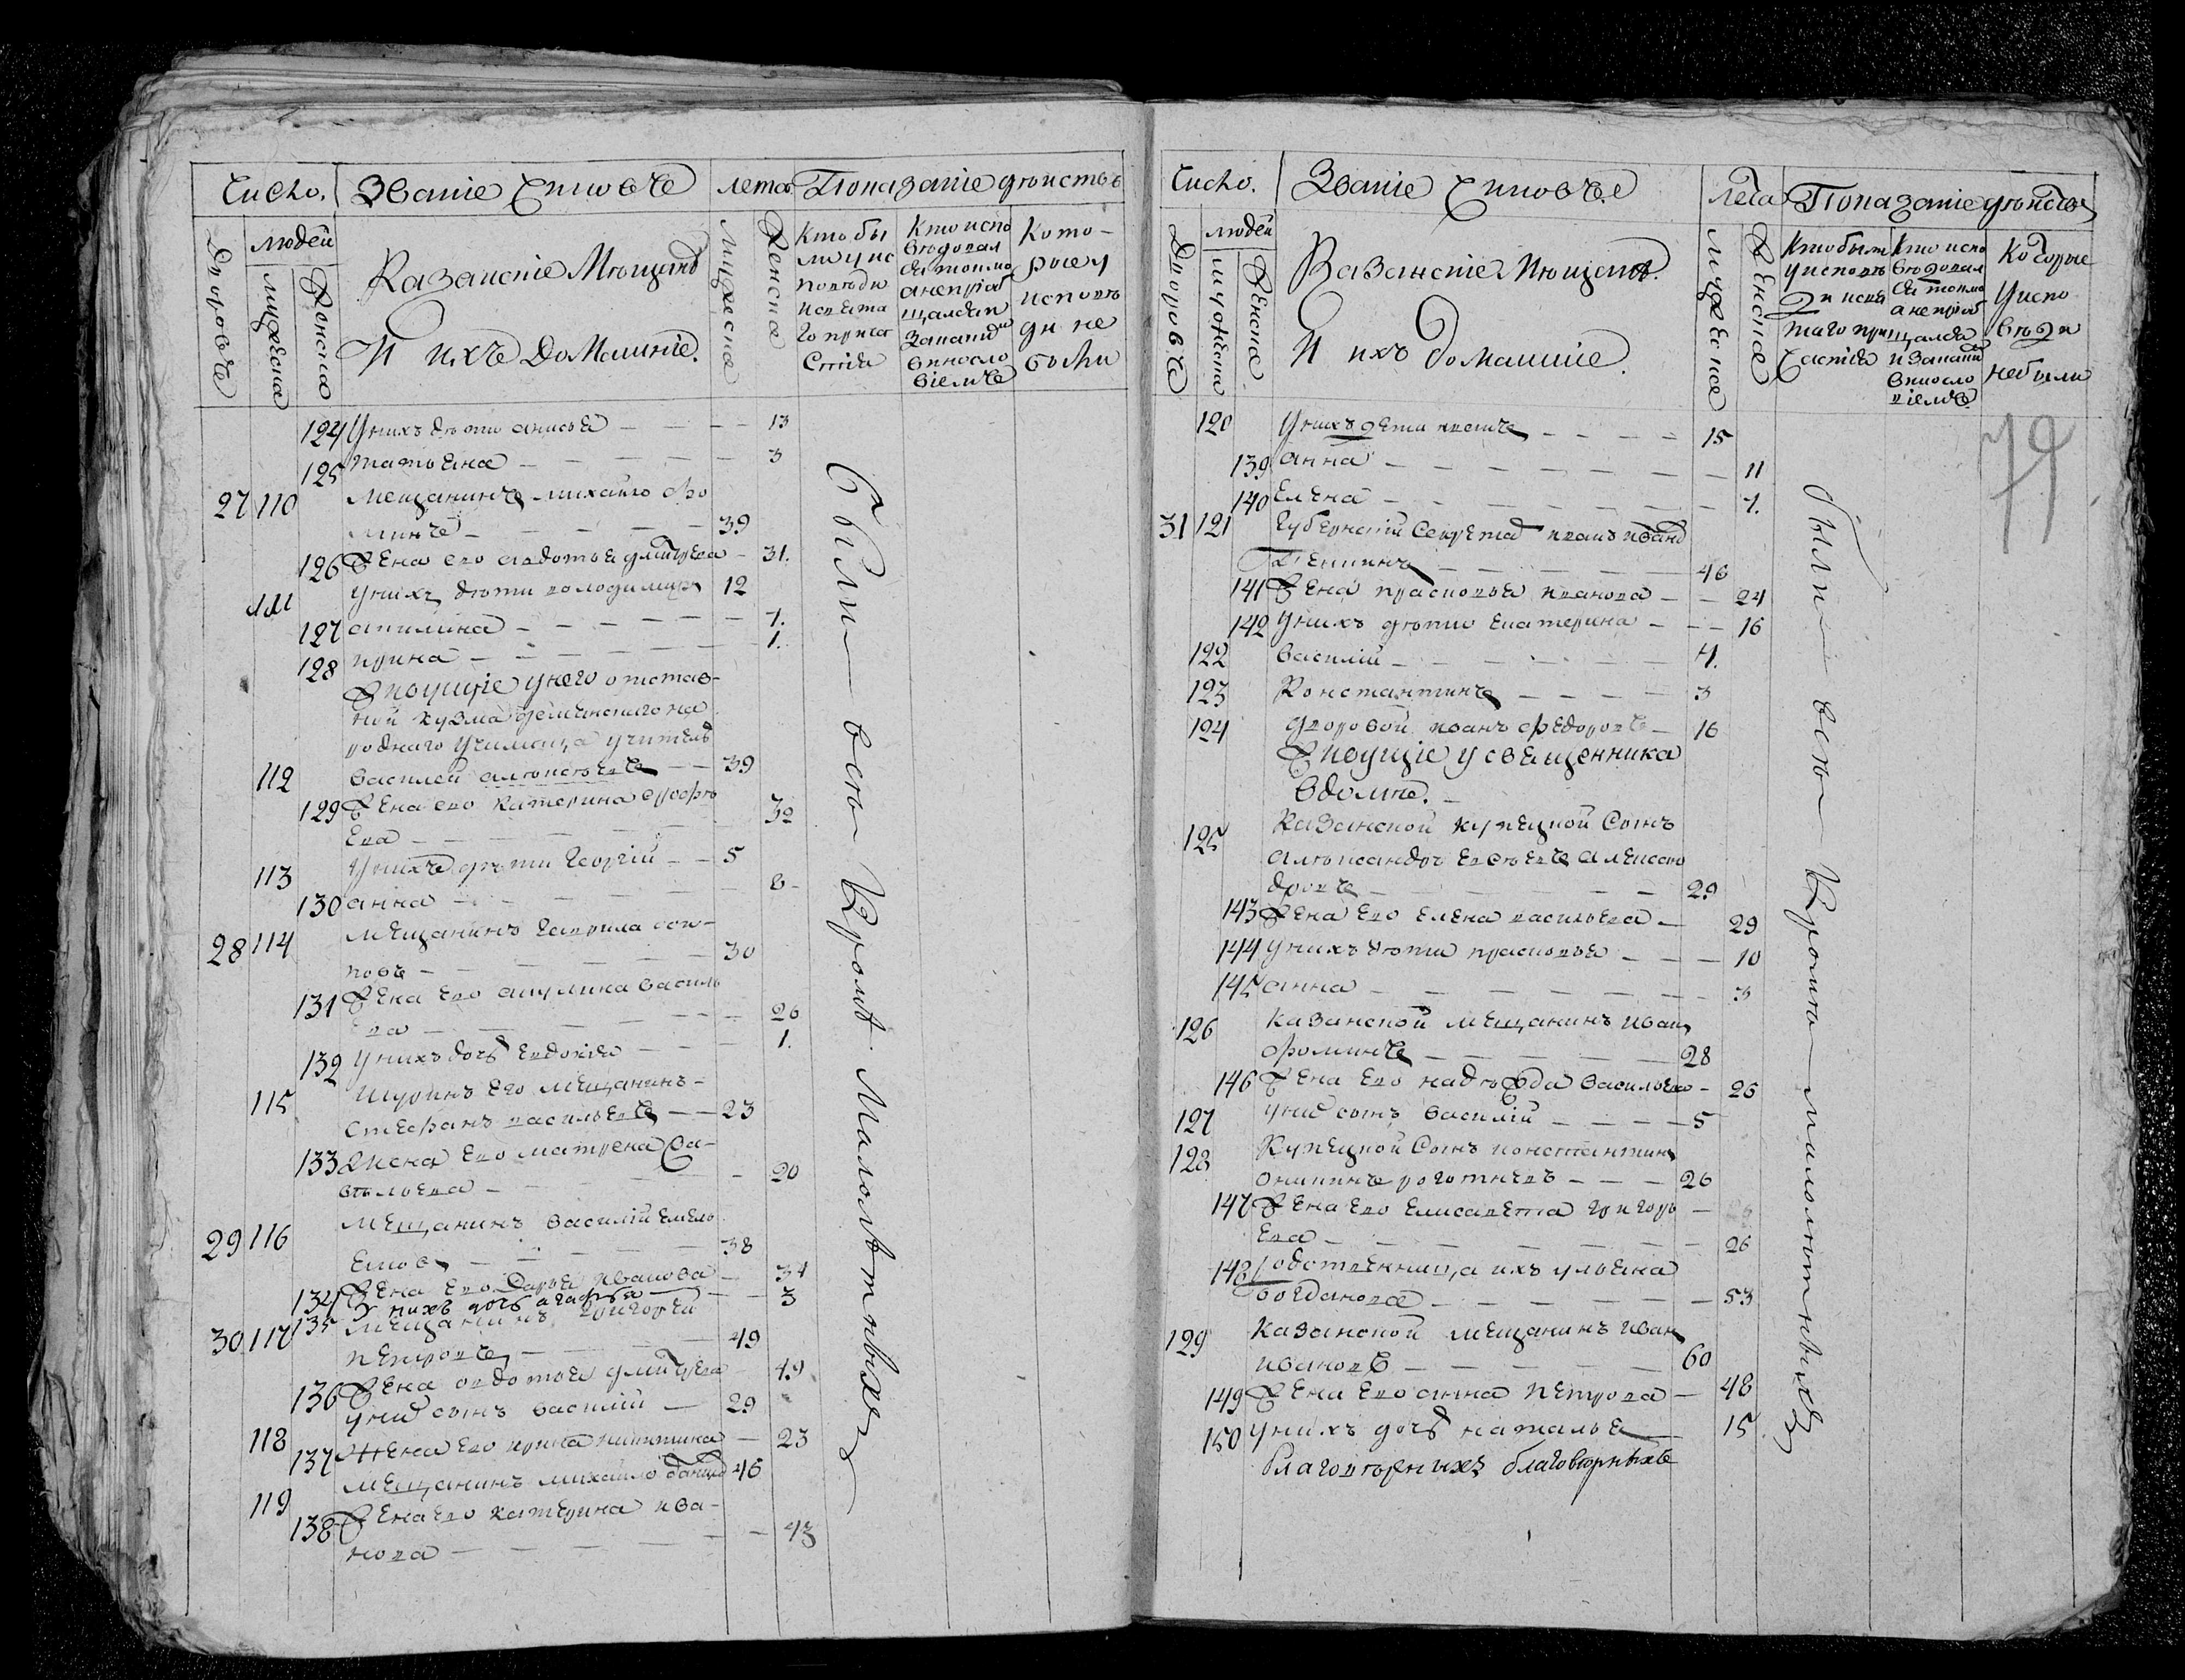 Число. Званіе Чиновъ лета Показаніе дѣйствъ
Дворовъ людей мужеска женска
Казанскіе Мѣщане
И ихъ Домашніе.
мужеска женска
Кто бы
ли у ис
повѣди
и свята
го прича
стія
Кто испо
вѣдовал
ся токмо
а не пріоб
щался и
за какимъ
винословіемъ
Кото-
рые у
исповѣ
ди не
были
124 У нихъ дѣти анисья 13
125 татьяна 3
27 110 мещанинъ михайло фо
минъ 39
126 Жена его авдотья дмитрева 31.
111 У нихъ дѣти володимиръ 12
127 акилина 7.
128 ирина 1.
Живущіе у него отстав-
ной
роднаго училища учитель
112 василей алексѣевъ 39
129 Жена его катерина ерофѣ
ева 32
113 У нихъ дѣти Георгій 5
130 анна 8
28 114 мещанинъ гаврила оси-
повъ 30
131 Жена его акулина василь
ева 26
132 У нихъ дочь евдокія 1.
115 Шуринъ его мещанинъ
стефанъ васильевъ 23
133 Жена его матрена са-
вельева 20
29 116 мещанинъ василій емель
еновъ 38
134 Жена его Дарья Иванова 34
135 У нихъ дочь агафья 3
30 117 мещанинъ григорей
петровъ 49
136 Жена авдотья дмитрева 49
118 У нихъ сынъ василій 29
137 Жена его ирина никитина 23
119 мещанинъ михайло 46
138 Жена его катерина ива-
нова 43
Были всѣ Кромѣ Малолѣтныхъ
Число. Званіе Чиновъ. Лета Показаніе дѣйствъ
Дворовъ людей мужеска женска
Казанскіе Мѣщане.
И ихъ домашніе.
мужеска женска
Кто были
у исповѣ
ди и свя
таго при
частія
Кто испо
вѣдовал
ся токмо
а не пріоб
щался
и за каким
винословіемъ
Которые
у испо
вѣди
не были
79
120 У нихъ дети 15
139 анна 11
140 Елена 7.
31 121 Губернскій Секретарь иванъ ивано
46
141 Жена прасковья иванова 24
142 У нихъ дѣти екатерина 16
122 Василій 4.
123 Константинъ 3
124 дворовой иванъ федоровъ 16
Живущіе у священника
в доме.
125 Казанской купецкой Сынъ
александръ евсѣевъ алексан
дровъ 29
143 Жена его елена васильева 29
144 У нихъ дѣти прасковья 10
145 анна 3
126 Казанской мещанинъ иванъ
фоминъ 28
146 Жена его надѣжда васильева 26
127 У нихъ сынъ василій 5
128 Купецкой Сынъ константинъ
рогожневъ 26
147 Жена его елисавета григорь
ева 26
148 родственница ихъ ульяна
богданова 53
129 Казанской мещанинъ иванъ
ивановъ 60
149 Жена его анна петрова 48
150 У нихъ дочь наталья 15
благовѣрныхъ благовѣрныхъ
были всѣ Кромѣ малолѣтныхъ